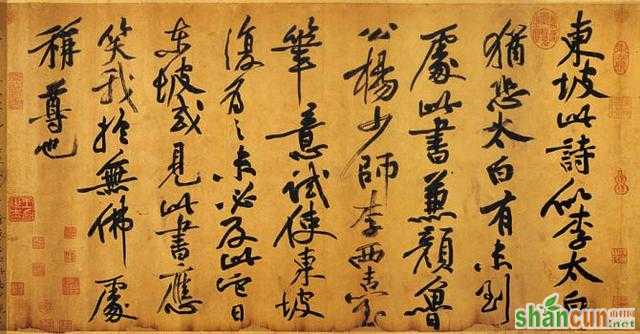 東坡此詩似李太白
猶恐太白有未到
處此書兼顏魯
公楊少師李西臺
筆意試使東坡
復為之未必及此它日
東坡或見此書應
笑我於無佛處
稱尊也
shancun
山村网
.net